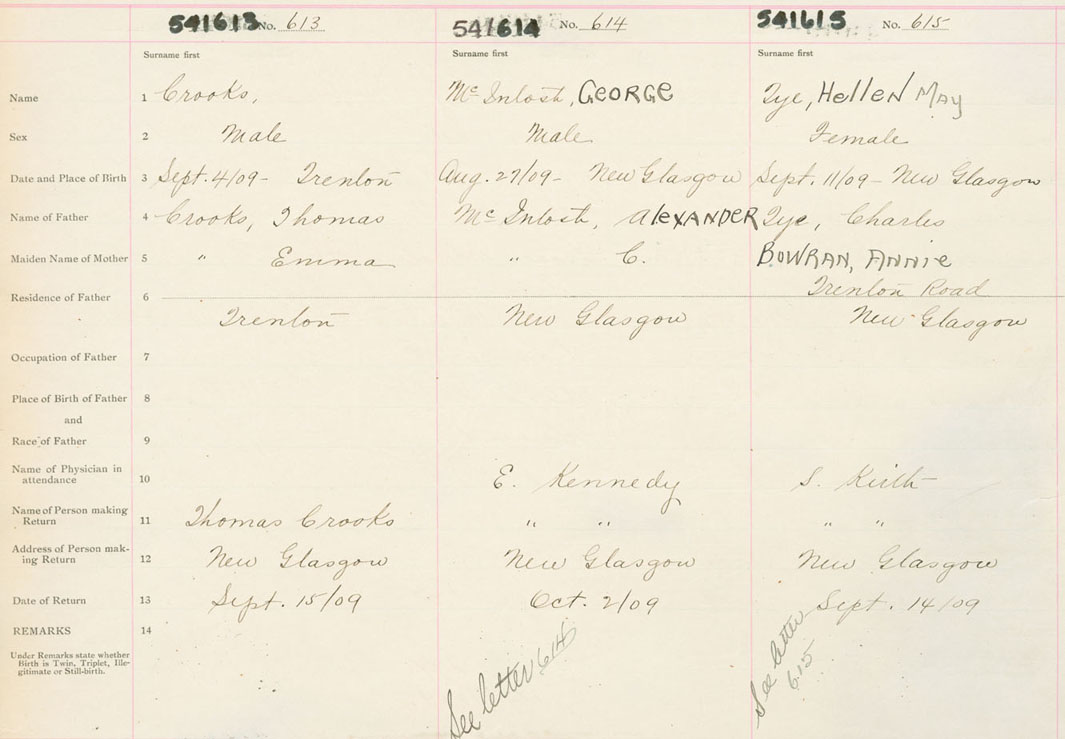 541613 No. 613 541614 No. 614 541615 No. 615
Surname first Surname first Surname first
Name 1 Crooks, Mc Intosh, GEORGE Tye, Hellen May
Sex 2 Male Male Female
Date and Place of Birth 3 Sept. 4/09 - Trenton Aug. 27/09 - New Glasgow Sept. 11/09 - New Glasgow
Name of Father 4 Crooks, Thomas Mc Intosh, AlexANDER Tye, Charles
Maiden Name of Mother 5 " Emma " C. BOWRAN, ANNiE
Trenton Road
Residence of Father 6
Trenton New Glasgow New Glasgow
Occupation of Father 7
Place of Birth of Father 8
and
Race of Father 9
Name of Physician in
attendance 10 E. Kennedy S. Keith
Name of Person making
Return 11 Thomas Crooks " " " "
Address of Person mak-
ing Return 12 New Glasgow New Glasgow New Glasgow
Date of Return 13 Sept. 15/09 Oct. 2/09 Sept. 14/09
REMARKS 14
Under Remarks state whether
Birth is Twin, Triplet, Ille-
gitimate or Still-birth.
See letter 614
See letter
615